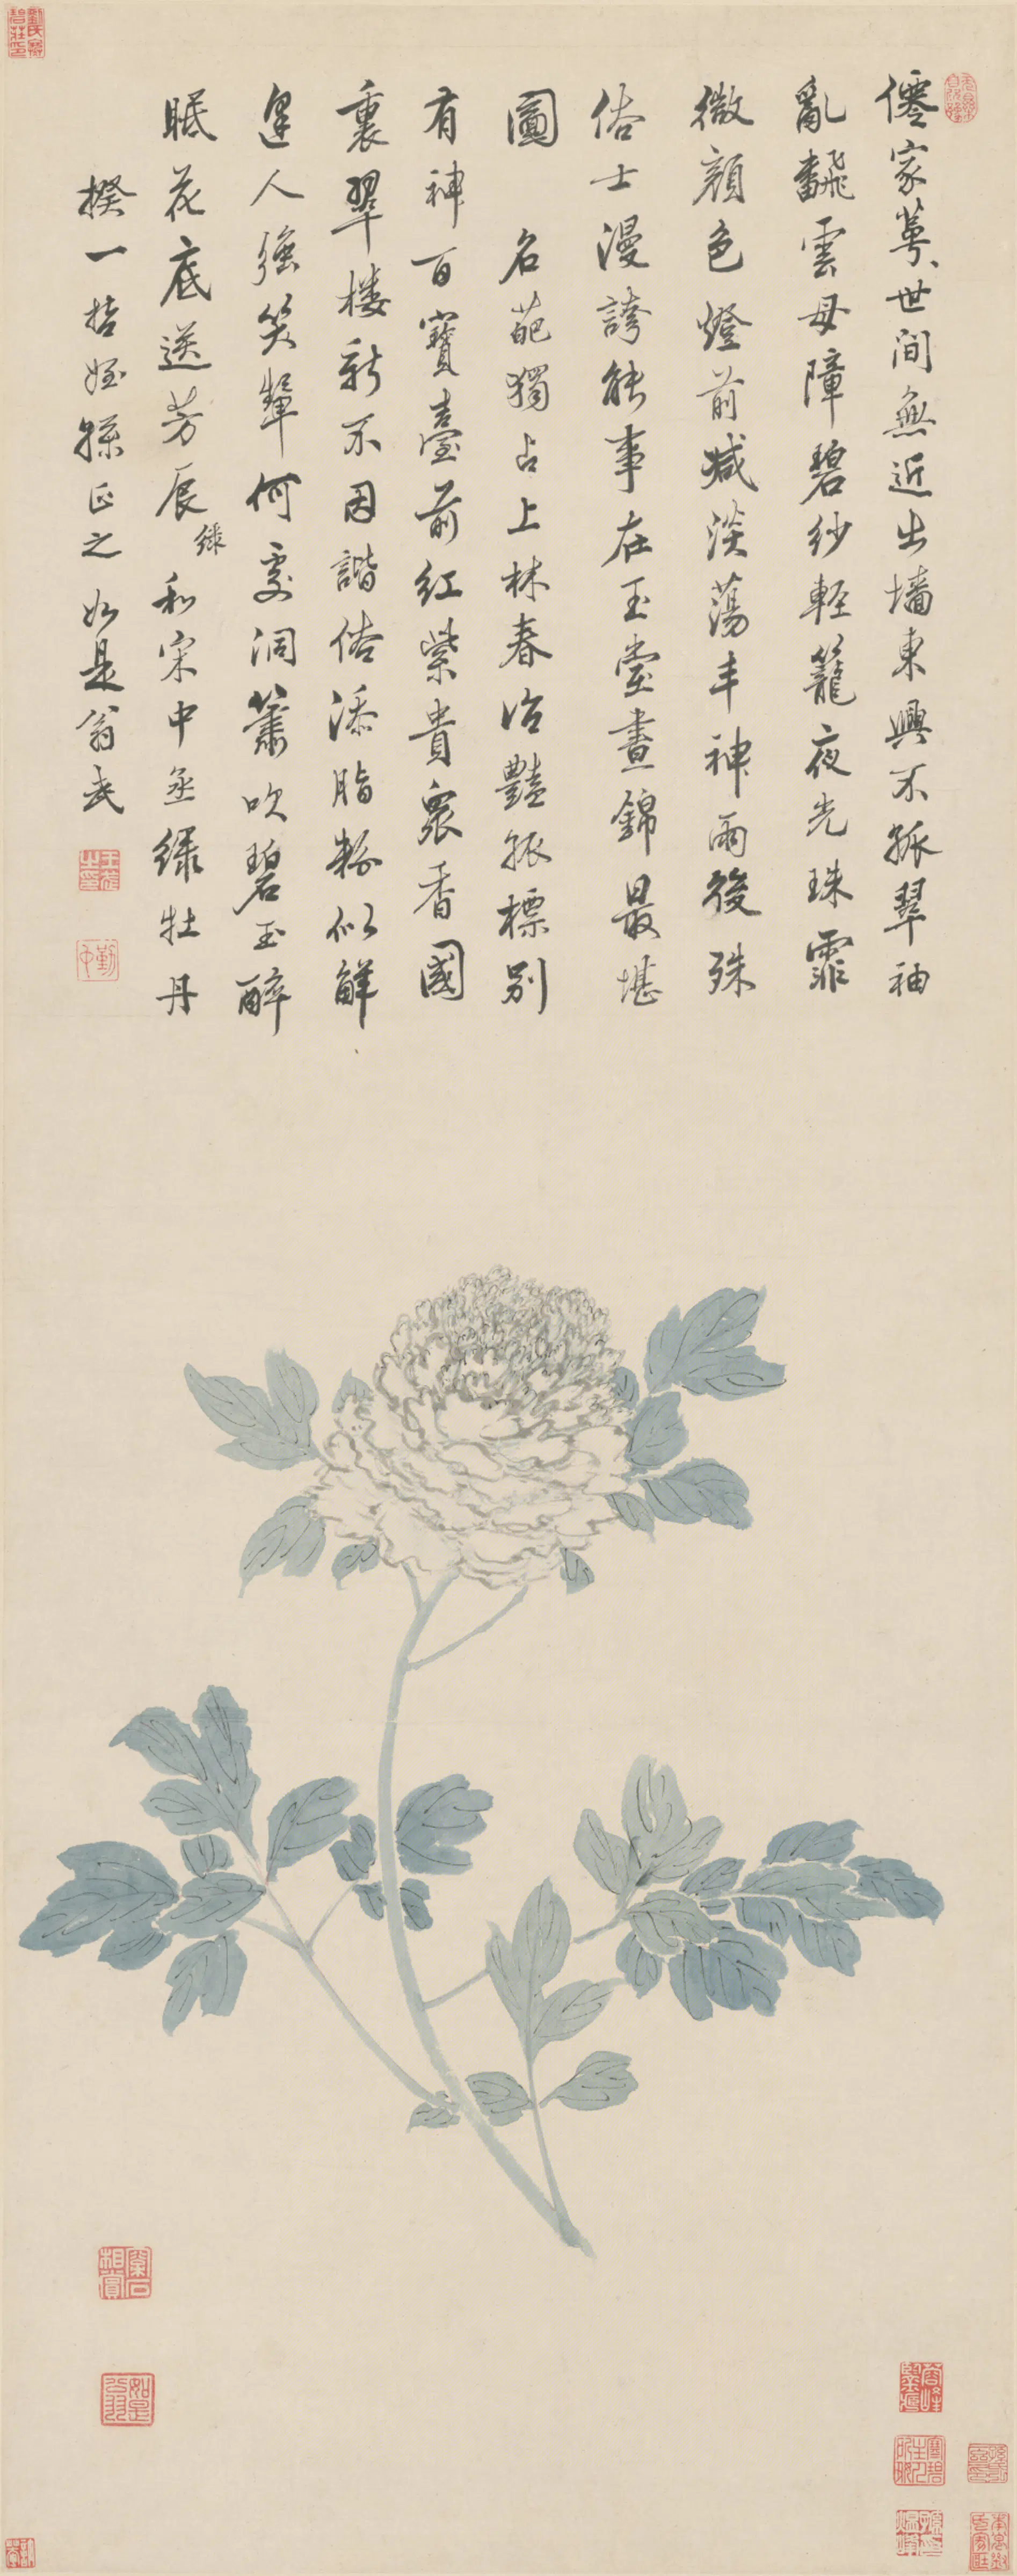 僊家萼、世間無近出墻東興不孤翠袖
亂飜雲母障碧紗輕籠夜光珠霏
微顏色燈前減淡蕩丰神雨後殊
俗士漫誇能事在玉堂晝錦最堪
圖 名葩獨占上林春冶豔振標別
有神百寶臺前紅紫貴眾香國
裏翠樓新不因諧俗添脂粉似解
逢人強笑顰何處洞簫吹碧玉醉
眠花底送芳辰 和宋中丞綠牡丹
綠
揆一哲姪孫正之 如是翁武
王武之印
勤中